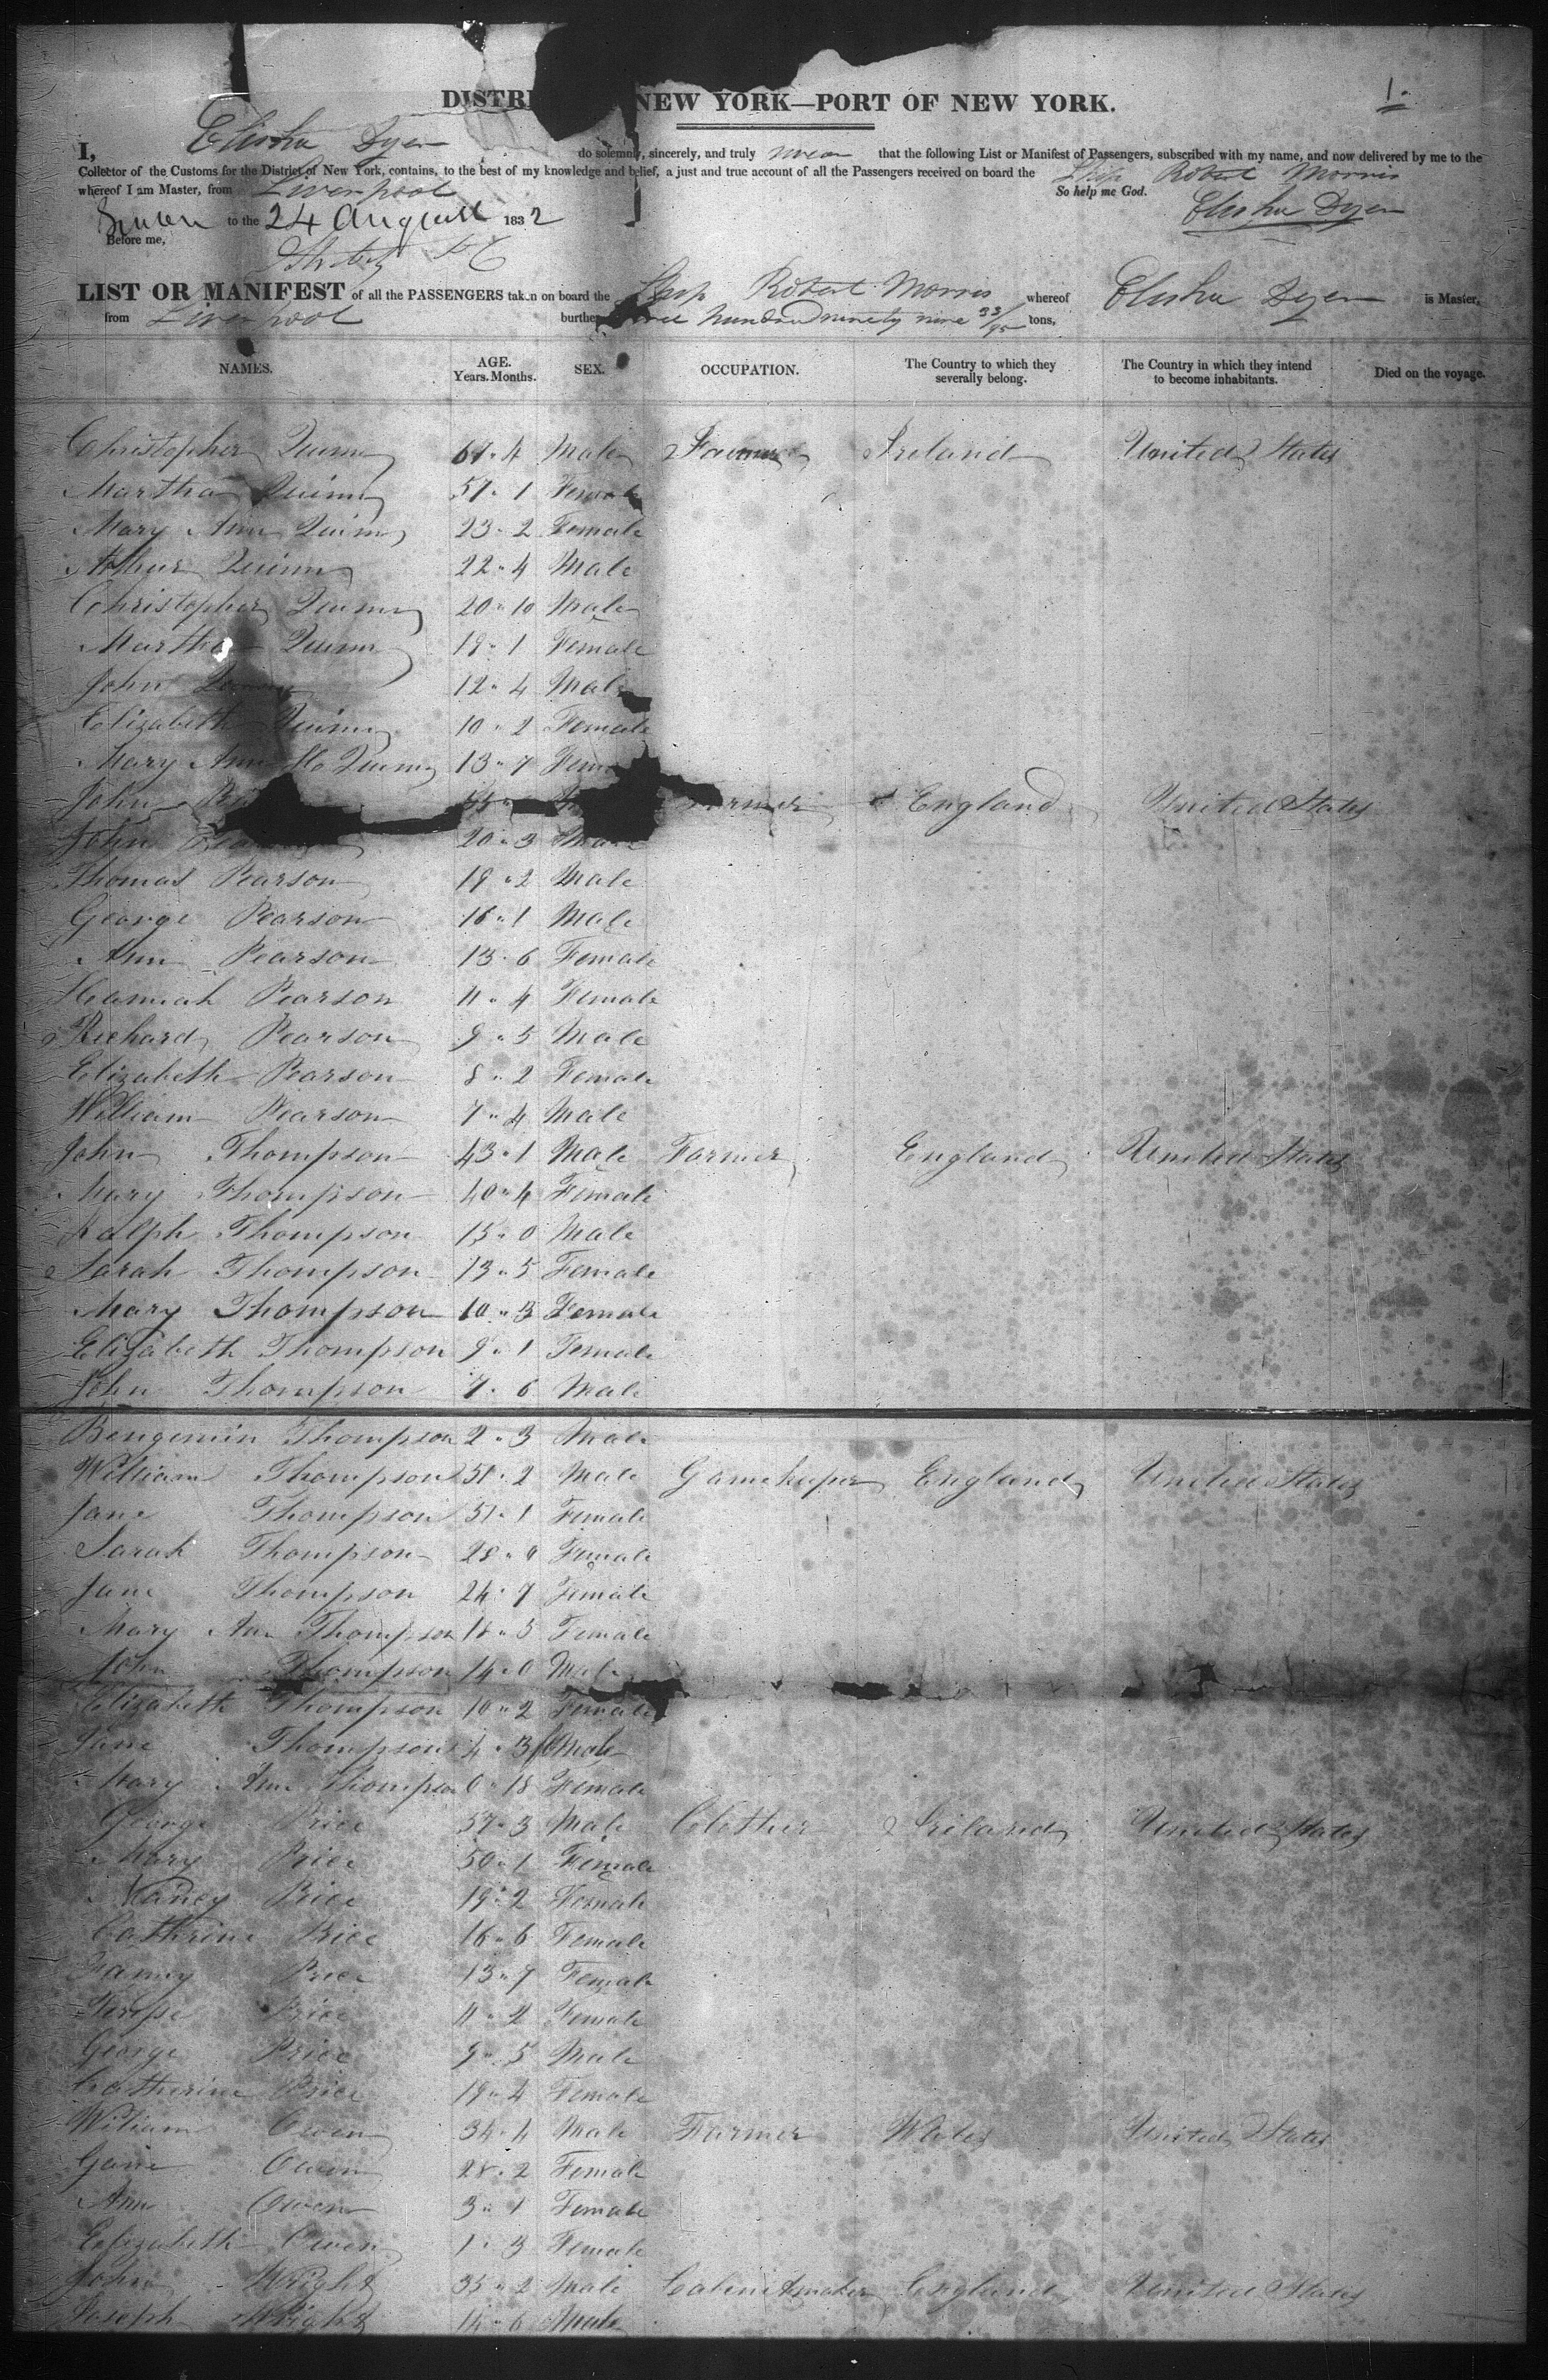 1.
DISTRI NEW YORK—PORT OF NEW YORK.
I, Elisha Dyer do solemnly, sincerely, and truly swear that the following List or Manifest of Passengers, subscribed with my name, and now delivered by me to the
Collector of the Customs for the District of New York, contains, to the best of my knowledge and belief, a just and true account of all the Passengers received on board the Ship Robert Morris
whereof I am Master, from Liverpool So help me God.
Sworn to the 24 August 1832 Elisha Dyer
Before me,
LIST OR MANIFEST of all the PASSENGERS taken on board the Ship Robert Morris whereof Elisha Dyer is Master,
from Liverpool burthen hundred ninety nine 33/95 tons,
NAMES. AGE. Years. Months. SEX. OCCUPATION. The Country to which they severally belong. The Country in which they intend to become inhabitants. Died on the voyage.
Christopher Quinn 61 " 4 Male Farmer Ireland United States
Martha Quinn 57 " 1 Female
Mary Ann Quinn 23 " 2 Female
Arthur Quinn 22 " 4 Male
Christopher Quinn 20 " 10 Male
Martha Quinn 19 " 1 Female
John Quinn 12 " 4 Male
Elizabeth Quinn 10 " 2 Female
Mary Ann Mc Quinn 13 " 7 Fem
John Farmer England United States
John 20 " 3 Male
Thomas Pearson 19 " 2 Male
George Pearson 16 " 1 Male
Ann Pearson 13 " 6 Female
Hannah Pearson 11 " 4 Female
Richard Pearson 9 " 5 Male
Elizabeth Pearson 8 " 2 Female
William Pearson 7 " 4 Male
John Thompson 43 " 1 Male Farmer England United States
Mary Thompson 40 " 4 Female
Ralph Thompson 15 " 0 Male
Sarah Thompson 13 " 5 Female
Mary Thompson 10 " 3 Female
Elizabeth Thompson 9 " 1 Female
John Thompson 7 " 6 Male
Bengemin Thompson 2 " 3 Male
William Thompson 51 " 2 Male Gamekeeper England United States
Jane Thompson 51 " 1 Female
Sarah Thompson 28 " 9 Female
Jane Thompson 24 " 7 Female
Mary Ann Thompson 18 " 5 Female
John Thompson 14 " 0 Male
Elizabeth Thompson 10 " 2 Female
Jane Thompson 4 " 3 feMale
Mary Ann Thompson 0 " 18 Female
George Price 57 " 3 Male Clothier Ireland United States
Mary Price 50 " 1 Female
Nancy Price 19 " 2 Female
Cathrine Price 16 " 6 Female
Fanny Price 13 " 7 Female
Price 11 " 2 Female
George Price 9 " 5 Male
Catherine Price 19 " 4 Female
William Owen 34 " 4 Male Farmer Wales United States
Gane Owen 28 " 2 Female
Ann Owen 3 " 1 Female
Elizabeth Owen 1 " 3 Female
John Wright 35 " 2 Male Cabinetmaker England United States
Joseph Wright 14 " 6 Male